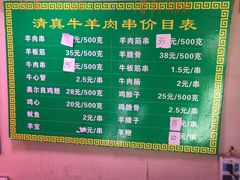 清真牛羊肉串价目表
羊肉串 元/500克 羊肉筋串 元/500克
羊板筋 元/500克 羊脆骨 38元/500克
牛肉串 元/500克 牛板筋 1.5元/串
牛心管 2.5元/串 牛肉肠 2元/串
奥尔良鸡翅 28元/500克 鸡脖子 25元/500克
鸡心 20元/500克 鸡脆骨 元/500克
鱿鱼 2元/串 羊腰子 元/串
羊宝 元/串 羊鞭 元/串